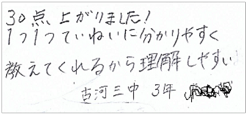 30点上がりました!
1つ1つていねいに分かりやすく
教えてくれるから理解しやすい
古河三中 3年